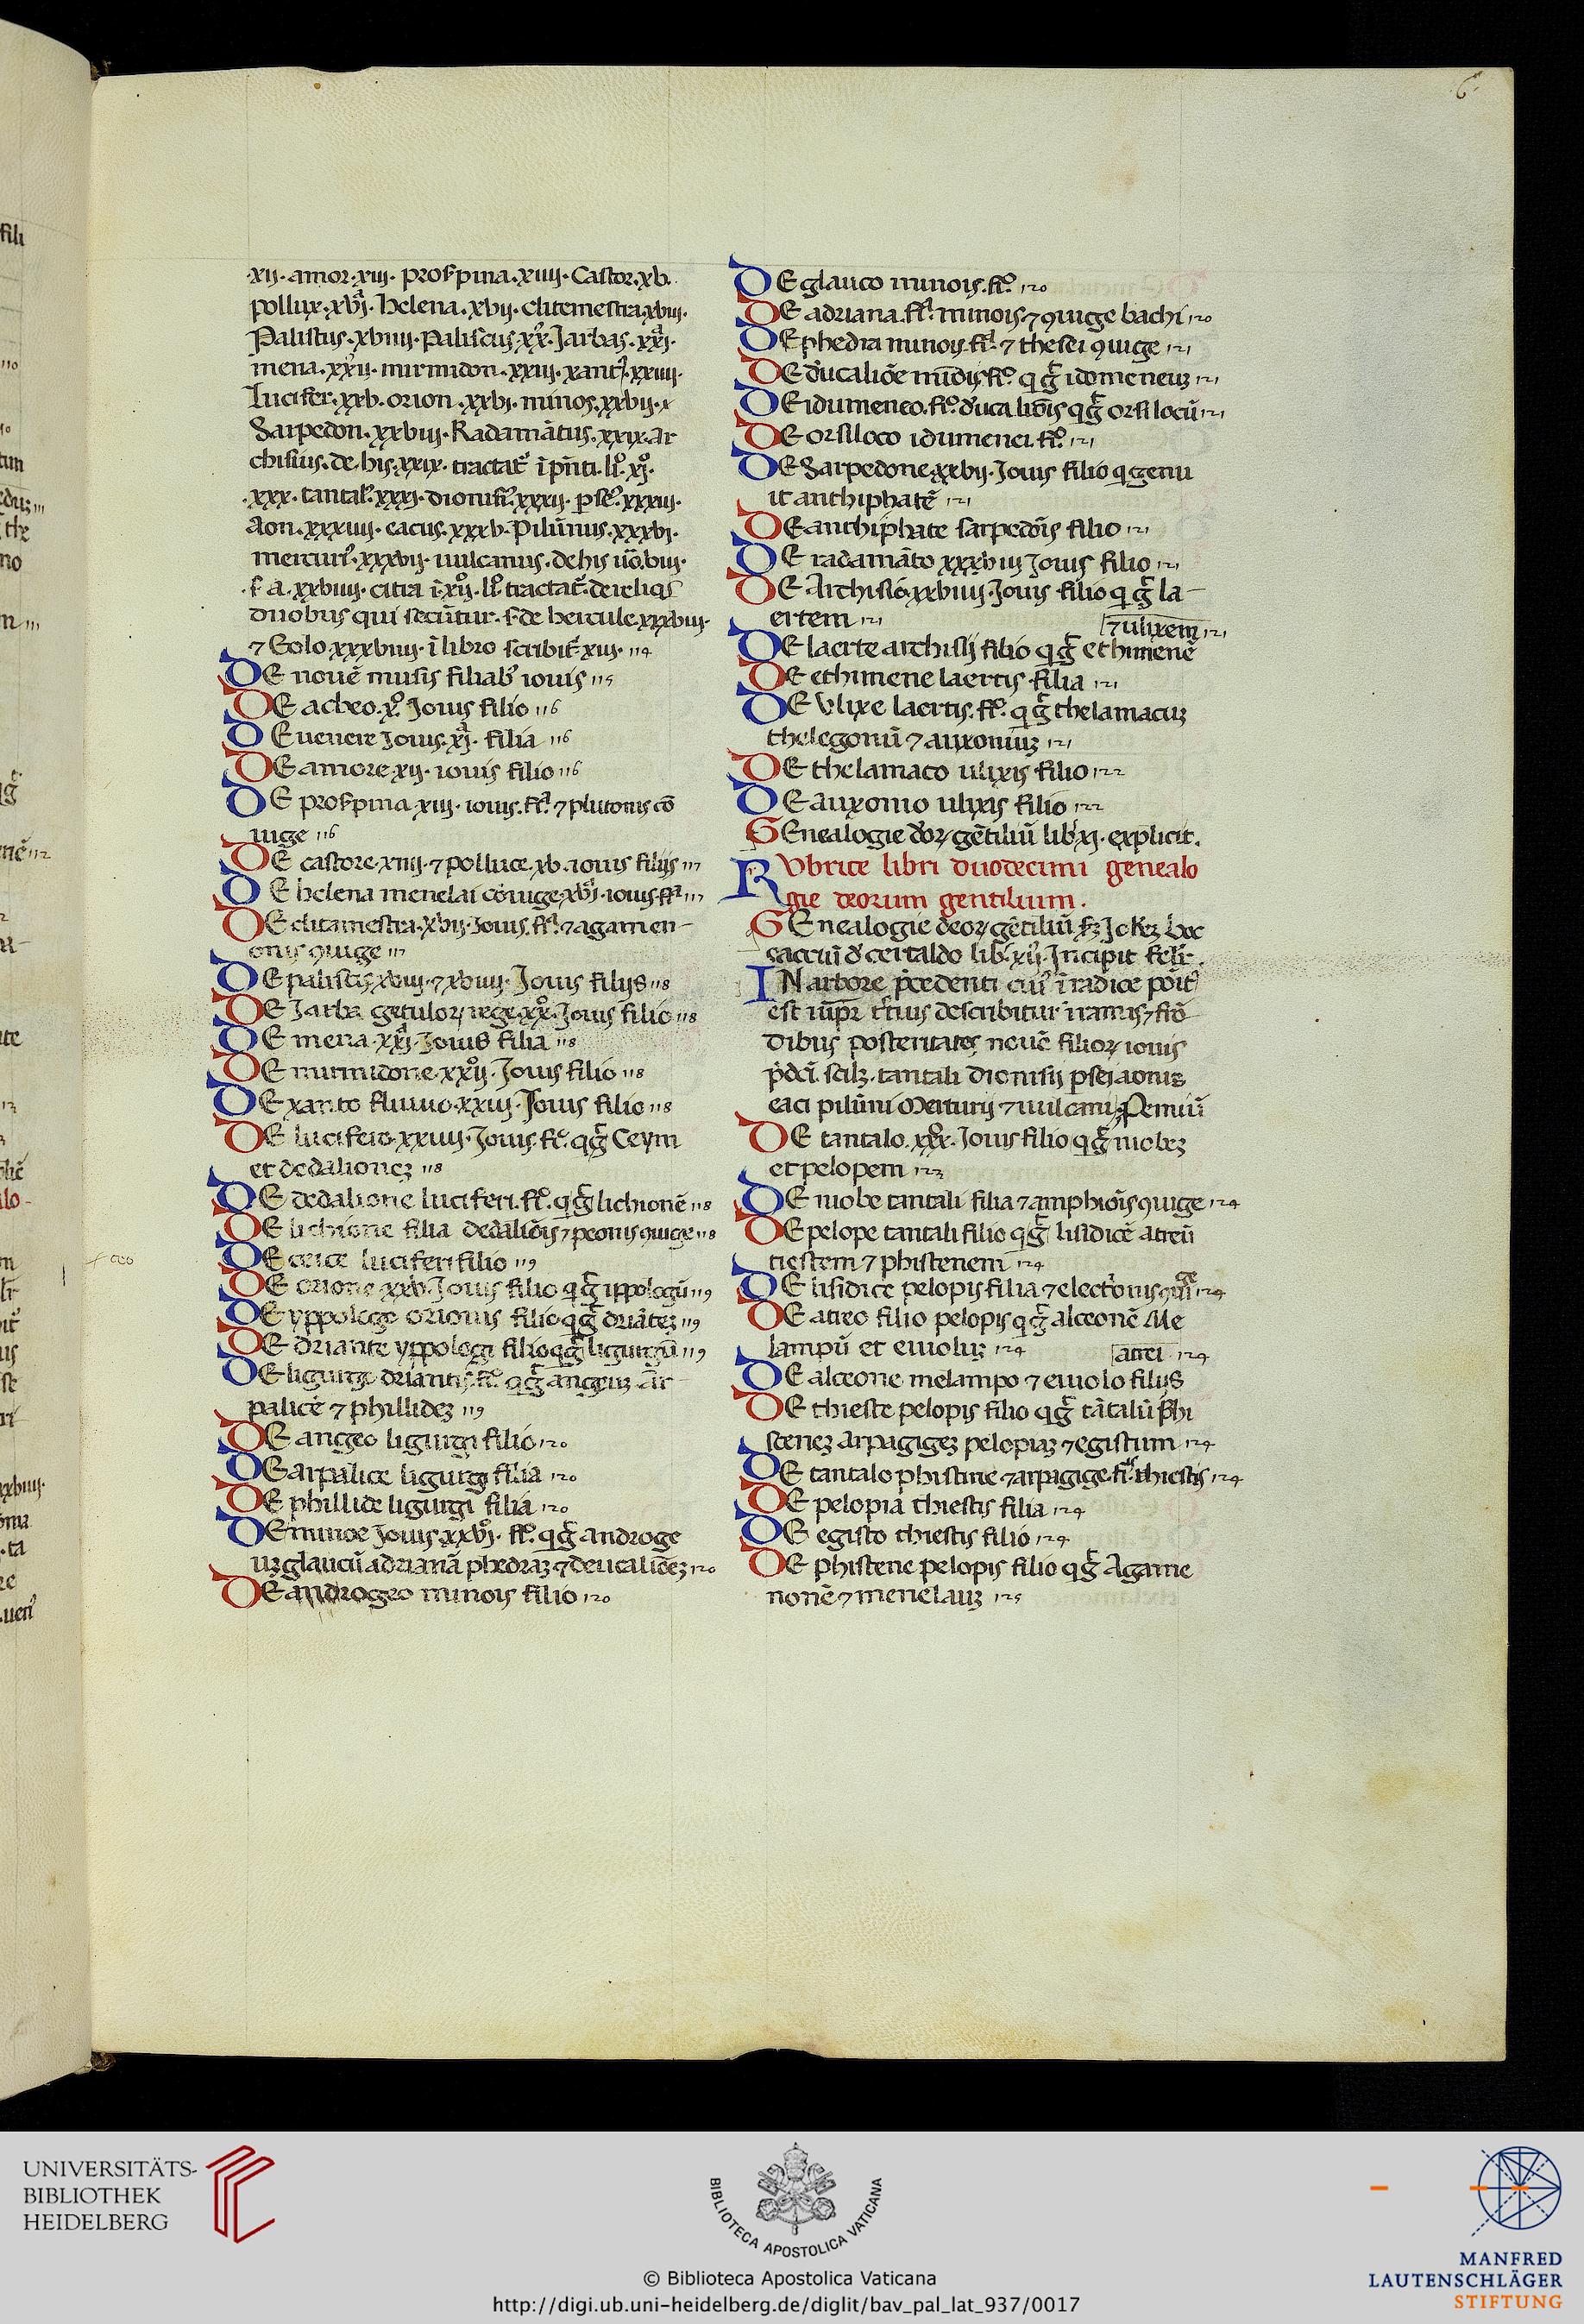 6
·xij· amor·xiij· prosꝑpina·xiiij· Castor·xv·
pollux·xvi· helena·xvij· clitemestra·xviij·
Palistus·xviiij· Paliscus·xx· Jarbas·xxi·
mena·xxij· mirmidon·xxiij· xant᷒·xxiiij·
Lucifer·xxv· orion·xxvi· minos·xxvij·
Sarpedon·xxviij· Radamātus·xxix· ar
chisius· de his xxix· tractat᷑ ī pn̄ti· li°· xi·
·xxx· tantal᷒·xxxi· dionisi᷒·xxxij· ꝑse᷒·xxxiij·
Aon·xxxiiij· eacus·xxxv· Pilūnus·xxxvi·
mercuri᷒·xxxvij· uulcanus· de his uō·viij·
citra ī xij° li° tractat᷑· de reliq̄s
duobus qui secūtur· s· de hercule xxxviij·
⁊ Eolo xxxviiij· ī libro scribit᷑ xiij· 114
DE nouē musis filiab᷒ iouis 115
DE acheo· x°· Jouis filio 116
DE uenere Jouis· xi· filia 116
DE amore xij· iouis filio 116
DE prosꝑpina xiij· iouis· fi̾· ⁊ plutonis cō
iuge 116
DE castore·xiiij· ⁊ polluce·xv· iouis filijs 117
DE helena menelai cōiuge·xvi· iouis fiᵃ 117
DE clitamestra·xvij· Jouis· fiᵃ· ⁊ agamen-
onis ꝯiuge 117
DE paliscis xviij· ⁊ xviiij· Jouis filijs 118
DE Jarba getuloꝝ rege xx°· Jouis filio 118
DE mena·xxi· Jouis filia 118
DE mirmidone·xxij°· Jouis filio 118
DE xanto fluuio·xxiij· Jouis filio 118
DE lucifero·xxiiij· Jouis· fi°· q̄ g̅ Ceym
et dedalionez 118
DE dedalione luciferi· fi°· q̄ g̅ lichionē 118
DE lichione filia dedaliōis ⁊ peonis ꝯiuge 118
ceo
DE ceice luciferi filio 119
DE orione xxv· Jouis filio q̄ g̅ ippologū 119
DE yppologo orionis filio q̄ g̅ driātez 119
DE driante yppologi filio q̄ g̅ ligurgū 119
DE ligurgo driantis· fi°· q̄ g̅ angeuz Ar
palicē ⁊ phillidez 119
DE angeo ligurgi filio 120
DE arpalice ligurgi filia 120
DE phillide ligurgi filia 120
DE minoe Jouis·xxvi°· fi°· q̄ g̅ androge
uz glaucū adrianā phedraz ⁊ deucaliōez 120
DE androgeo minois filio 120
DE glauco minois· fi°· 120
DE adriana· fiᵃ· minois ⁊ ꝯiuge bachi 120
DE phedra minois fiᵃ· ⁊ thesei ꝯiuge 121
DE d᷒ucaliōe minōis fi°· q̄ g̅ idomeneuz 121
DE idumeneo· fi°· d᷒ucaliōis q̄ g̅ orsilocū 121
DE orsiloco idumenei· fi°· 121
DE Sarpedone xxvij· Jouis filio q̄ genu
it anthiphatē 121
DE anthiphate sarpedōis filio 121
DE radamāto xxxviij Jouis filio 121
DE Archisio·xxviiij· Jouis filio q̄ g̅ la-
ertem 121
⁊ ulixem 121
DE laerte archisij filio q̄ g̅ ethimenē
DE ethimene laertis filia 121
DE Vlixe laertis· fi°· q̄ g̅ thelamacuz
thelegonū ⁊ auxoniuz 121
DE thelamaco ulixis filio 122
DE auxonio ulixis filio 122
GEnealogie d᷒oꝝ gētiliū lib᷒ xi· explicit·
RVbrice libri duodecimi genealo
gie deorum gentilium·
GEnealogie deoꝝ gētiliū s̄z Johēz boc
cacciū d᷒ certaldo lib᷒· xij· Incipit felr̄·
IN arbore p̄cedenti cui᷒ ī radice pōit᷑
est iup̄r t᷑tius describitur ī ramis ⁊ frō
dibus posteritates nouē filioꝝ iouis
p̄dc̄i· scilz· tantali dionisij ꝑsei aonis
eaci pilūni Mercurij ⁊ uulcani· Pemiū
DE tantalo·xxx°· Jouis filio q̄ g̅ niobez
et pelopem 123
DE niobe tantali filia ⁊ amphiōis ꝯiuge 124
DE pelope tantali filio q̄ g̅ lisidicē atreū
tiestem ⁊ phistenem 124
DE lisidice pelopis filia ⁊ elect᷑onis ꝯiuge 124
DE atreo filio pelopis q̄ g̅ alceonē Me
lampū et euioluz 124
atrei 124
DE alceone melampo ⁊ euiolo filijs
DE thieste pelopis filio q̄ g̅ tātalū Phi
stenez arpagigez pelopiaz ⁊ egistum 124
DE tantalo phistine ⁊ arpagige· fijˢ· thiestis 124
DE pelopia thiestis filia 124
DE egisto thiestis filio 124
DE phistene pelopis filio q̄ g̅ Agame
nonē ⁊ menelauz 125
UNIVERSITÄTS-
BIBLIOTHEK
HEIDELBERG
BIBLIOTECA APOSTOLICA VATICANA
© Biblioteca Apostolica Vaticana
http://digi.ub.uni-heidelberg.de/diglit/bav_pal_lat_937/0017
MANFRED
LAUTENSCHLÄGER
STIFTUNG